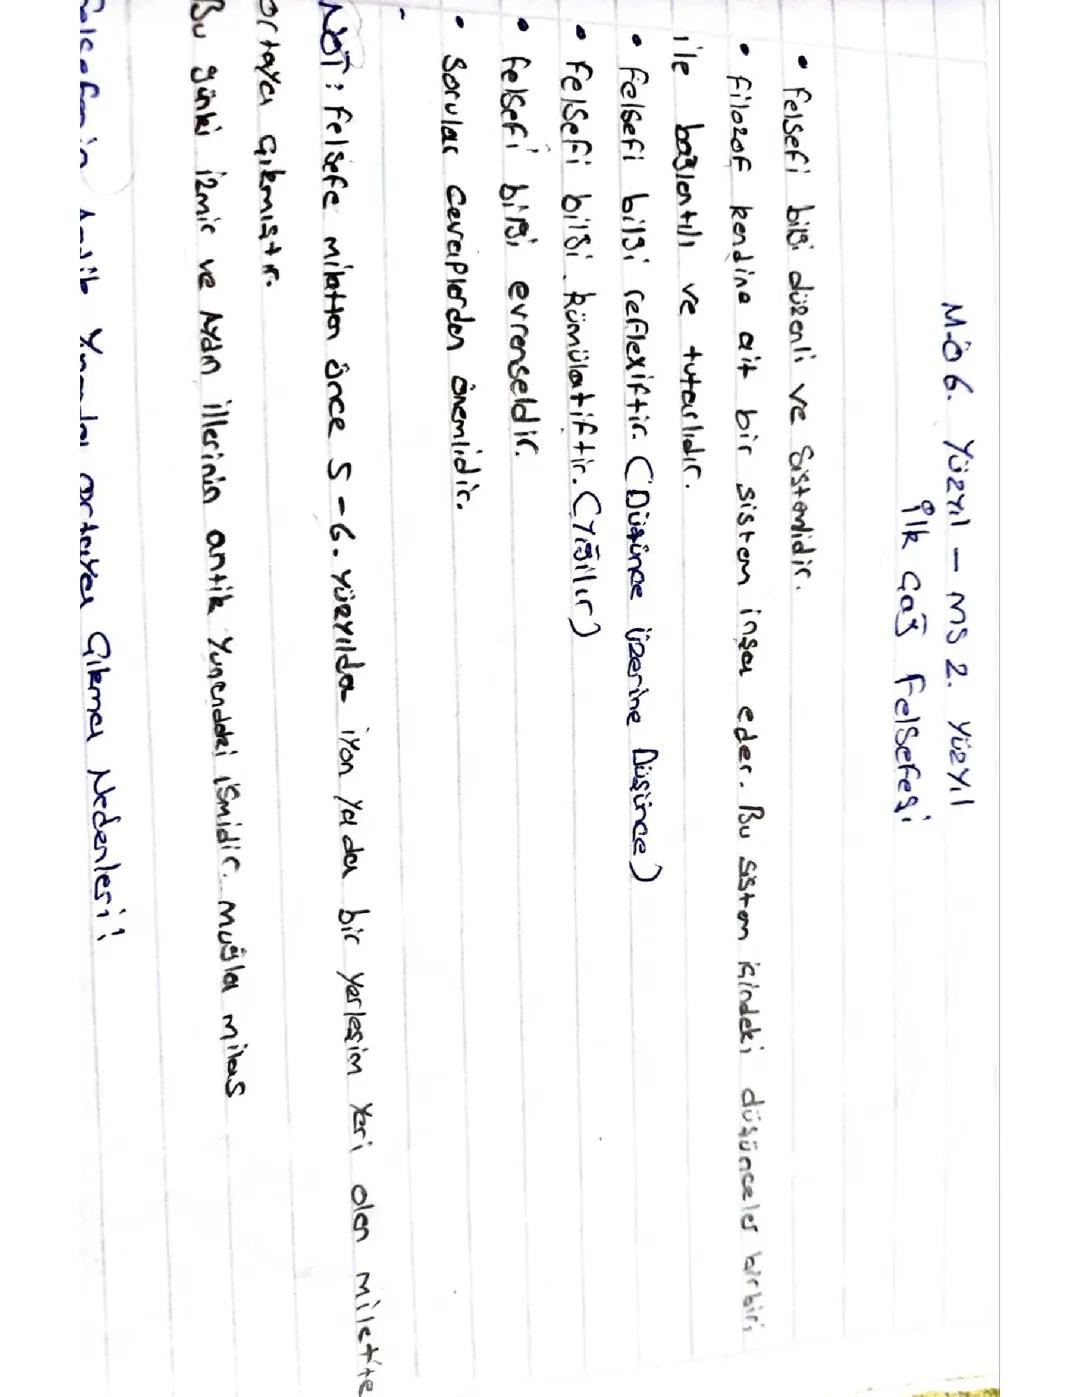 M.Ö 6. Yüzyıl - MS 2. Yüzyıl
İlk Çağ Felsefesi
• Felsefi bilgi düzenli ve Sistemlidir.
• Filozof kendine ait bir sistem inşa eder. Bu sistem içindeki düşünceler birbiri
ile bağlantılı ve tutarlıdır.
• Felsefi bilgi reflexiftir. (Düşünce üzerine Düşünce)
• Felsefi bilgi kümülatiftir. (Yığılır)
• Felsefi bilgi evrenseldir.
• Sorular cevaplardan önemlidir.
NOT: Felsefe milattan önce 5-6. yüzyılda iyon ya da bir yerleşim yeri olan milet'te
ortaya çıkmıştır.
Bu günki izmir ve Aydın illerinin antik Yunandaki ismidir. muğla milas
Felsefenin Antik Yunanda ortaya Çıkma Nedenleri!